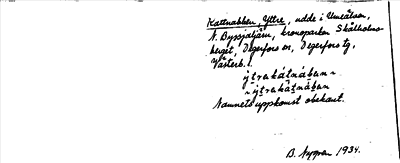 Kattnabben, Yttre, udde i Umeälven,
N. Byssjaljäm, kronoparken Skålholms-
berget, Degerfors sn, Degerfors tg,
Västerb. l.
ỳtrakátnában ~
~ ýtrakàtnában
Namnets uppkomst obekant.
B. Nygren 1934.